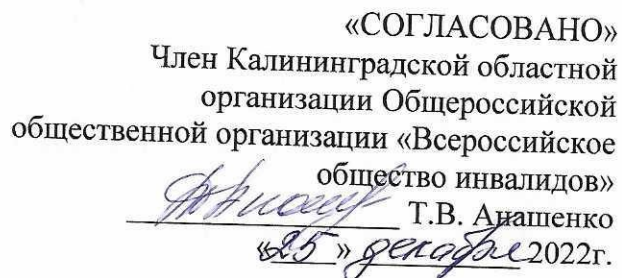 «СОГЛАСОВАНО»
Член Калининградской областной
организации Общероссийской
общественной организации «Всероссийское
общество инвалидов»
Т.В. Анашенко
«25» декабря 2022г.